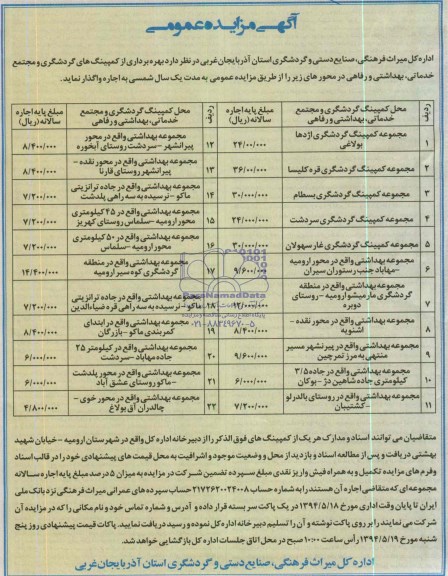 آگهی مزایده عمومی
اداره کل میراث فرهنگی، صنایع دستی و گردشگری استان آذربایجان غربی در نظر دارد بهره برداری از کمپینگ های گردشگری و مجتمع
خدماتی، بهداشتی و رفاهی در محور های زیر را از طریق مزایده عمومی به مدت یک سال شمسی به اجاره واگذار نماید.
ردیف محل کمپینگ گردشگری و مجتمع خدماتی، بهداشتی و رفاهی مبلغ پایه اجاره سالانه (ریال)
۱ مجموعه کمپینگ گردشگری اژدها بولاغی
۲ مجموعه کمپینگ گردشگری قره کلیسا
۳ مجموعه کمپینگ گردشگری بسطام ۳۰/۰۰۰/۰۰۰
۴ مجموعه کمپینگ گردشگری سردشت ۲۴/۰۰۰/۰۰۰
۵ مجموعه کمپینگ گردشگری غار سهولان ۳۰/۰۰۰/۰۰۰
۶ مجموعه بهداشتی واقع در محور ارومیه - مهاباد جنب رستوران سیران ۹/۶۰۰/۰۰۰
۷ مجموعه بهداشتی واقع در منطقه گردشگری مارمیشو ارومیه - روستای ۱۲/۰۰۰/۰۰۰
۸ مجموعه بهداشتی واقع در محور نقده - اشنویه ۸/۴۰۰/۰۰۰
۹ مجموعه بهداشتی واقع در پیرانشهر مسیر منتهی به مرز تمرچین ۹/۶۰۰/۰۰۰
۱۰ مجموعه بهداشتی واقع در جاده ۳/۵ کیلومتری جاده شاهین دژ - بوکان ۶/۰۰۰/۰۰۰
۱۱ مجموعه بهداشتی واقع در روستای بالدرلو - کشتیبان ۷/۲۰۰/۰۰۰
ردیف محل کمپینگ گردشگری و مجتمع خدماتی، بهداشتی و رفاهی مبلغ پایه اجاره سالانه (ریال)
۱۲ مجموعه بهداشتی واقع در محور پیرانشهر - سردشت روستای آبخوره ۸/۴۰۰/۰۰۰
۱۳ مجموعه بهداشتی واقع در محور نقده - پیرانشهر روستای قارنا ۸/۴۰۰/۰۰۰
۱۴ مجموعه بهداشتی واقع در جاده ترانزیتی ماکو - نرسیده به سه راهی پلدشت ۷/۲۰۰/۰۰۰
۱۵ مجموعه بهداشتی واقع در ۴۵ کیلومتری محور ارومیه - سلماس روستای کهریز ۷/۲۰۰/۰۰۰
۱۶ مجموعه بهداشتی واقع در ۵۰ کیلومتری محور ارومیه - سلماس ۷/۲۰۰/۰۰۰
۱۷ مجموعه بهداشتی واقع در منطقه گردشگری کوه سیر ارومیه ۱۴/۴۰۰/۰۰۰
مجموعه بهداشتی واقع در جاده ترانزیتی ماکو - نرسیده به سه راهی قره ضیاءالدین ۷/۲۰۰/۰۰۰
۱۹ مجموعه بهداشتی واقع در ابتدای کمربندی ماکو - بازرگان ۸/۴۰۰/۰۰۰
۲۰ مجموعه بهداشتی واقع در کیلومتر ۲۵ جاده مهاباد - سردشت ۶/۰۰۰/۰۰۰
۲۱ مجموعه بهداشتی واقع در محور پلدشت - ماکو روستای عشق آباد ۶/۰۰۰/۰۰۰
۲۲ مجموعه بهداشتی واقع در محور خوی - چالدران آق بولاغ ۴/۸۰۰/۰۰۰
ParsNamadData
۰۲۱-۸۸۳۴۹۶۷۰-۵
متقاضیان می توانند اسناد و مدارک هر یک از کمپینگ های فوق الذکر را از دبیرخانه اداره کل واقع در شهرستان ارومیه - خیابان شهید
بهشتی دریافت و پس از مطالعه اسناد و بازدید از محل و وضعیت موجود و اشرافیت به محل قیمت های پیشنهادی خود را در قالب اسناد
و فرم های مزایده تکمیل و به همراه فیش واریز نقدی مبلغ سپرده تضمین شرکت در مزایده به میزان ۵ درصد مبلغ پایه اجاره سالانه
مجموعه ای که متقاضی اجاره آن هستند را به شماره حساب ۲۱۷۲۶۳۰۰۲۴۰۰۸ حساب سپرده های عمرانی میراث فرهنگی نزد بانک ملی
ایران تا پایان وقت اداری مورخ ۱۳۹۴/۵/۱۸ در یک پاکت سر بسته قرار داده و آدرس و شماره تماس خود و نام مکانی را که در مزایده آن
شرکت می نمایند را بر روی پاکت نوشته و آن را تسلیم دبیرخانه اداره کل نموده و رسید دریافت نمایند. پاکات قیمت پیشنهادی روز پنج
شنبه مورخ ۱۳۹۴/۵/۱۹ رأس ساعت ۱۰:۰۰ صبح در محل اتاق جلسات اداره کل بازگشایی خواهد شد.
اداره کل میراث فرهنگی، صنایع دستی و گردشگری استان آذربایجان غربی